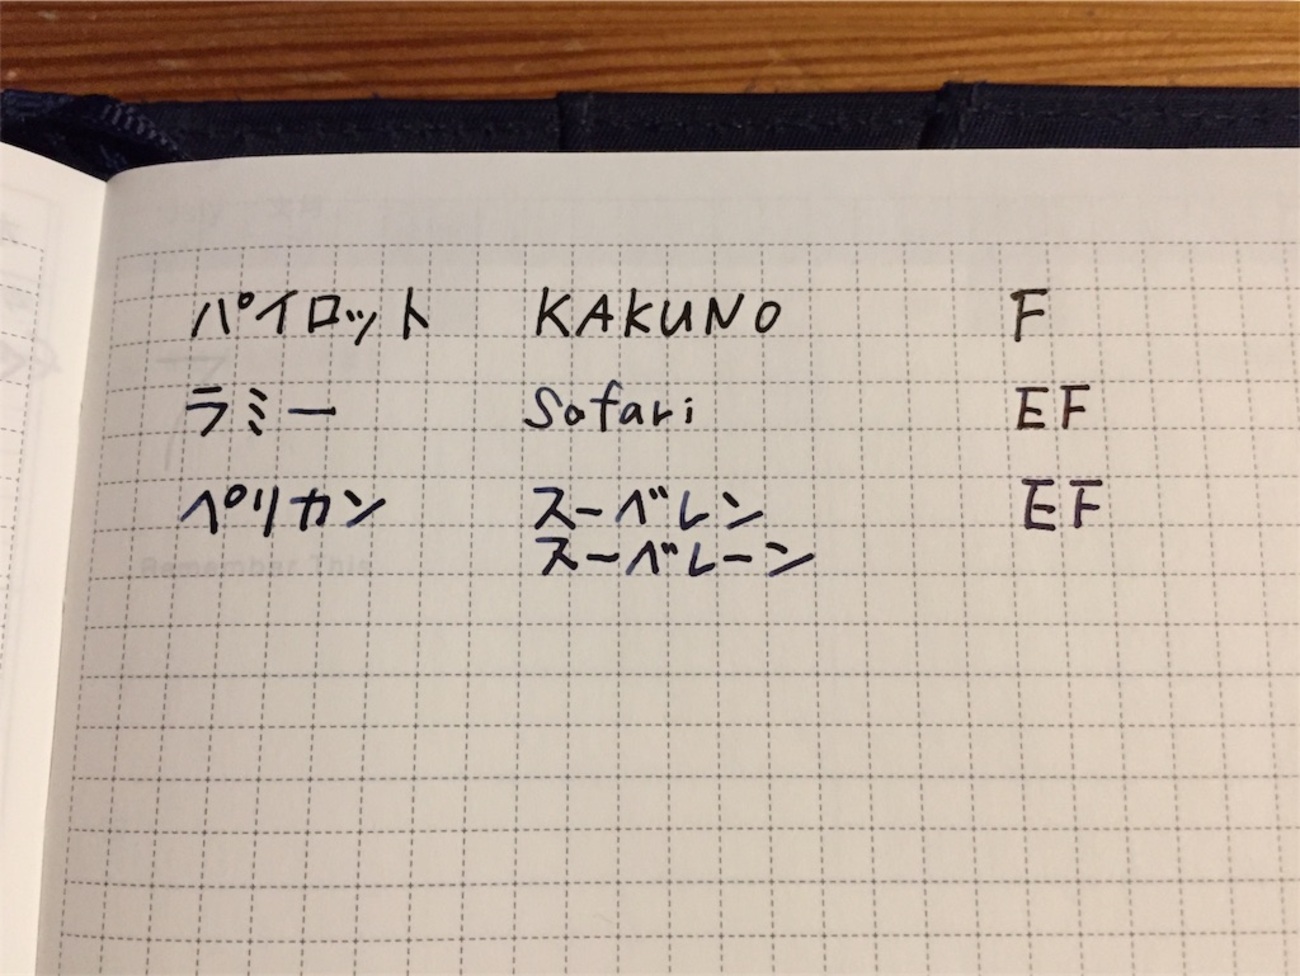 パイロット KAKUNO F
ラミー Safari EF
ペリカン スーベレン EF
スーベレーン
Remember This